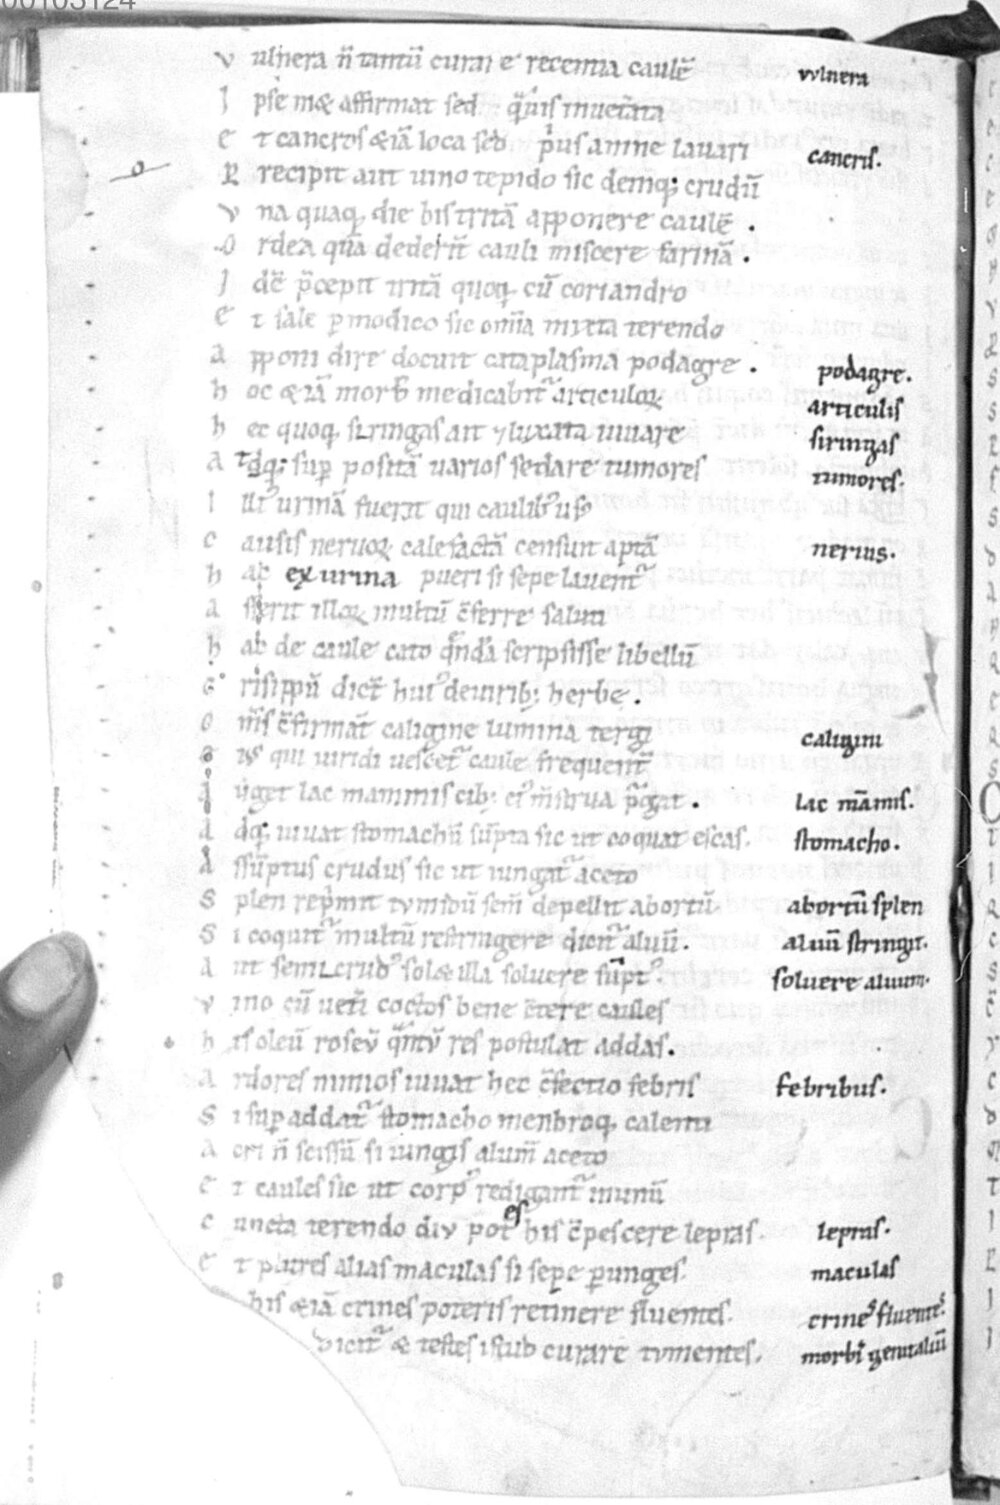 00103124
v ulnera n̄ tantū curari e' recentia caulē vulnera
I pse mȩ affirmat sed q̄uis inuet̄ata
e t cancros &iā loca sed p̓us amne lauari cancris.
P recipit aut uino tepido sic demq; crudū
v na quaq, die bis tritā apponere caulē .
O rdea quā dederīt cauli miscere farinā .
I dē p̄cepit tritā quoq, cū coriandro
e t sale p modico sic om̄ia mixta terendo
a pponi dire docuit cataplasma podagre . podagre.
h oc &iā morb̄ medicabit᷑ articuloꝝ articulis
h ec quoq, siringas ait ⁊ luxata iuuare siringas
A tdq; sup positā uarios sedare tumores tumores.
I lliꝰ urinā fuerit qui caulibꝰ usꝰ
c ausis neruoꝝ calefactā censunt aptā neruis.
h ac ex urina pueri si sepe lauent᷑
a sserit illoꝝ multū c̄ferre saluti
h ac de caule cato q̄ndā scripsisse libellū
c risippū dict̄ huiꝰ de uirib; herbe .
o m̄s c̄firmat̄ caligine lumina tergi caligini
is qui uiridi uescet᷑ caule frequent᷑
A uget lac mammis cib; eiꝰ m̄strua p̄gat . lac māmis.
A dq; iuuat stomachū sūpta sic ut coquat escas. stomacho.
A ssūptus crudus sic ut iungat᷑ aceto
S plen rep̓mit tvmidū sem̄ depellit abortū. abortū splen
S i coquit᷑ multū restringere dicit᷑ aluū. aluū stringit.
A ut semicrudꝰ solȩ illa soluere sūptꝰ. soluere aluum.
v ino cū uet̓i coctos bene t̄ere caules
h is oleū rosev̄ q̄ntv̄ res postulat addas.
A rdores nimios iuuat hec c̄fectio febris febribus.
S i sup addat᷑ stomacho menbroq, calenti
A cri n̄ scissū si iungis alum̄ aceto
e t caules sic ut corpꝰ redigant᷑ in unū
c uncta terendo div potes his c̄pescere lepras. lepras.
e t plures alias maculas si sepe p̱unges. maculas
his &iā crines poteris retinere fluentes. crines fluentes.
Dicit᷑ & testes istud curare tvmentes. morbi genitaliū